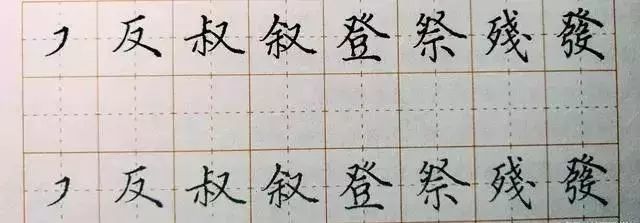 ㇇反叔叙登祭殘發
㇇反叔叙登祭殘發